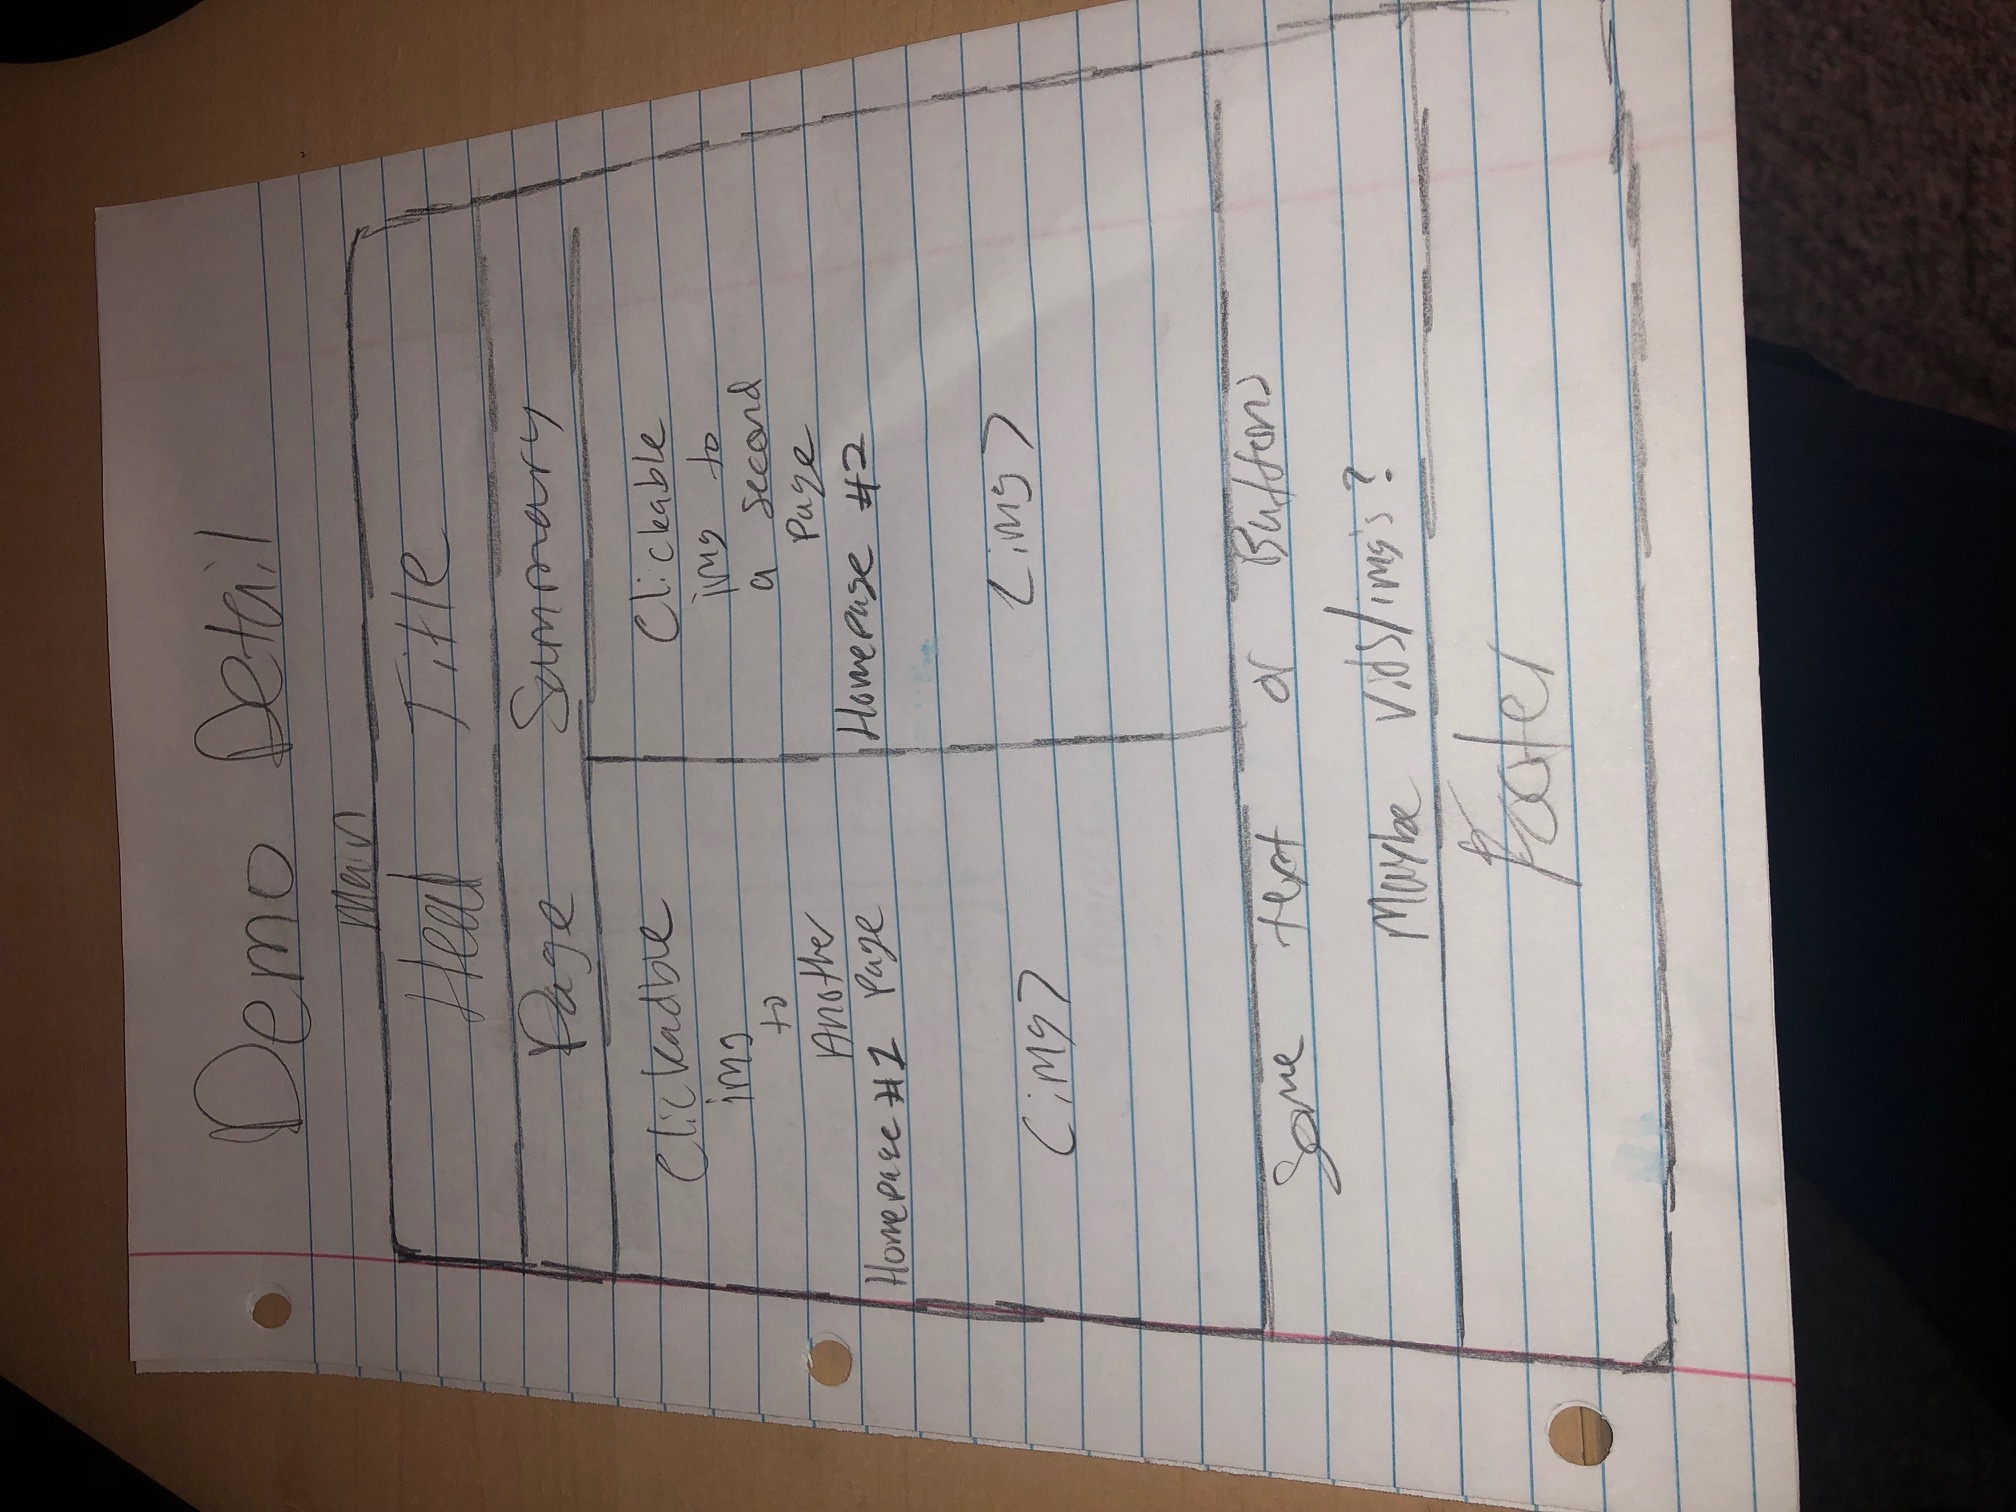 Demo Detail
Main
Head Title
Page Summary
Clickadble
img
to
Another
Homepage #1 Page
Clickable
img to
a second
Page
Homepage #2
<img>
<img>
Some text or Buttons
Maybe vids/img's?
Footer